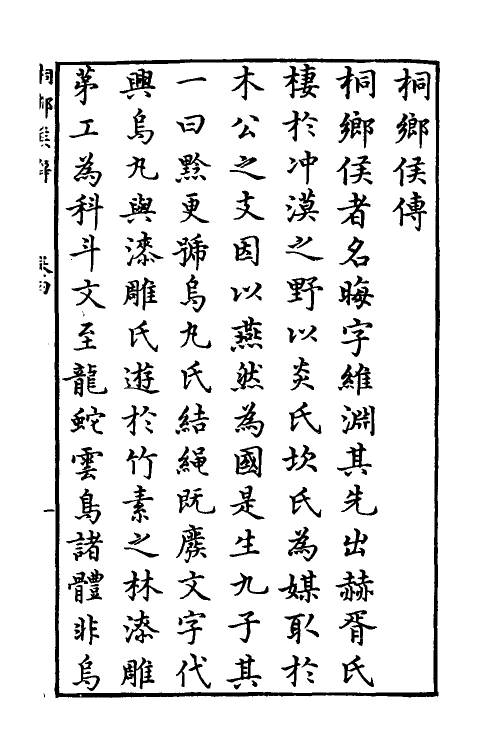 桐鄉侯傳
桐鄉侯者名晦字維淵其先出赫胥氏
棲於冲漠之野以炎氏坎氏為媒耴於
木公之支因以燕然為國是生九子其
一曰黥更號烏丸氏結繩既廢文字代
興烏丸與漆雕氏遊於竹素之林漆雕
苐工為科斗文至龍蛇雲鳥諸體非烏